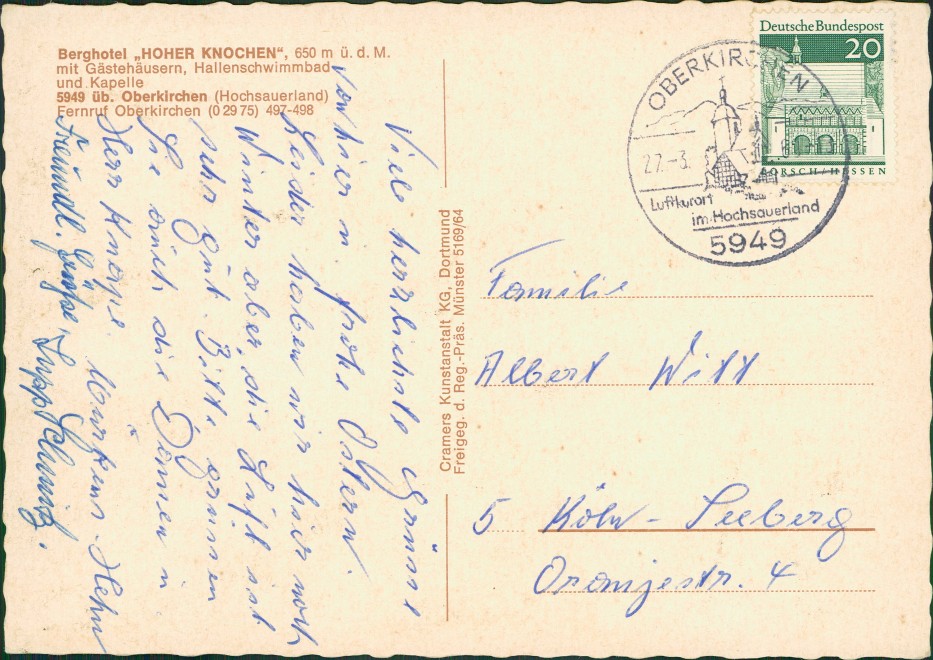 Berghotel „HOHER KNOCHEN“, 650 m ü. d. M.
mit Gästehäusern, Hallenschwimmbad
und Kapelle
5949 üb. Oberkirchen (Hochsauerland)
Fernruf Oberkirchen (0 29 75) 497-498
Viele herzlichste Grüsse
von hier u. frohe Ostern.
Leider haben wir hier noch
Winter aber die Luft ist
sehr gut. Bitte grüssen
Sie auch die Damen u
Herr Knops.
Freundl. Grüße,
Cramers Kunstanstalt KG, Dortmund
Freigeg. d. Reg.-Präs. Münster 5169/64
Deutsche Bundespost
20
LORSCH/HESSEN
OBERKIRCHEN
27.-3.
Luftkurort
im Hochsauerland
5949
Familie
Albert Witt
5 Köln - Seeberg
Oranjestr. 4